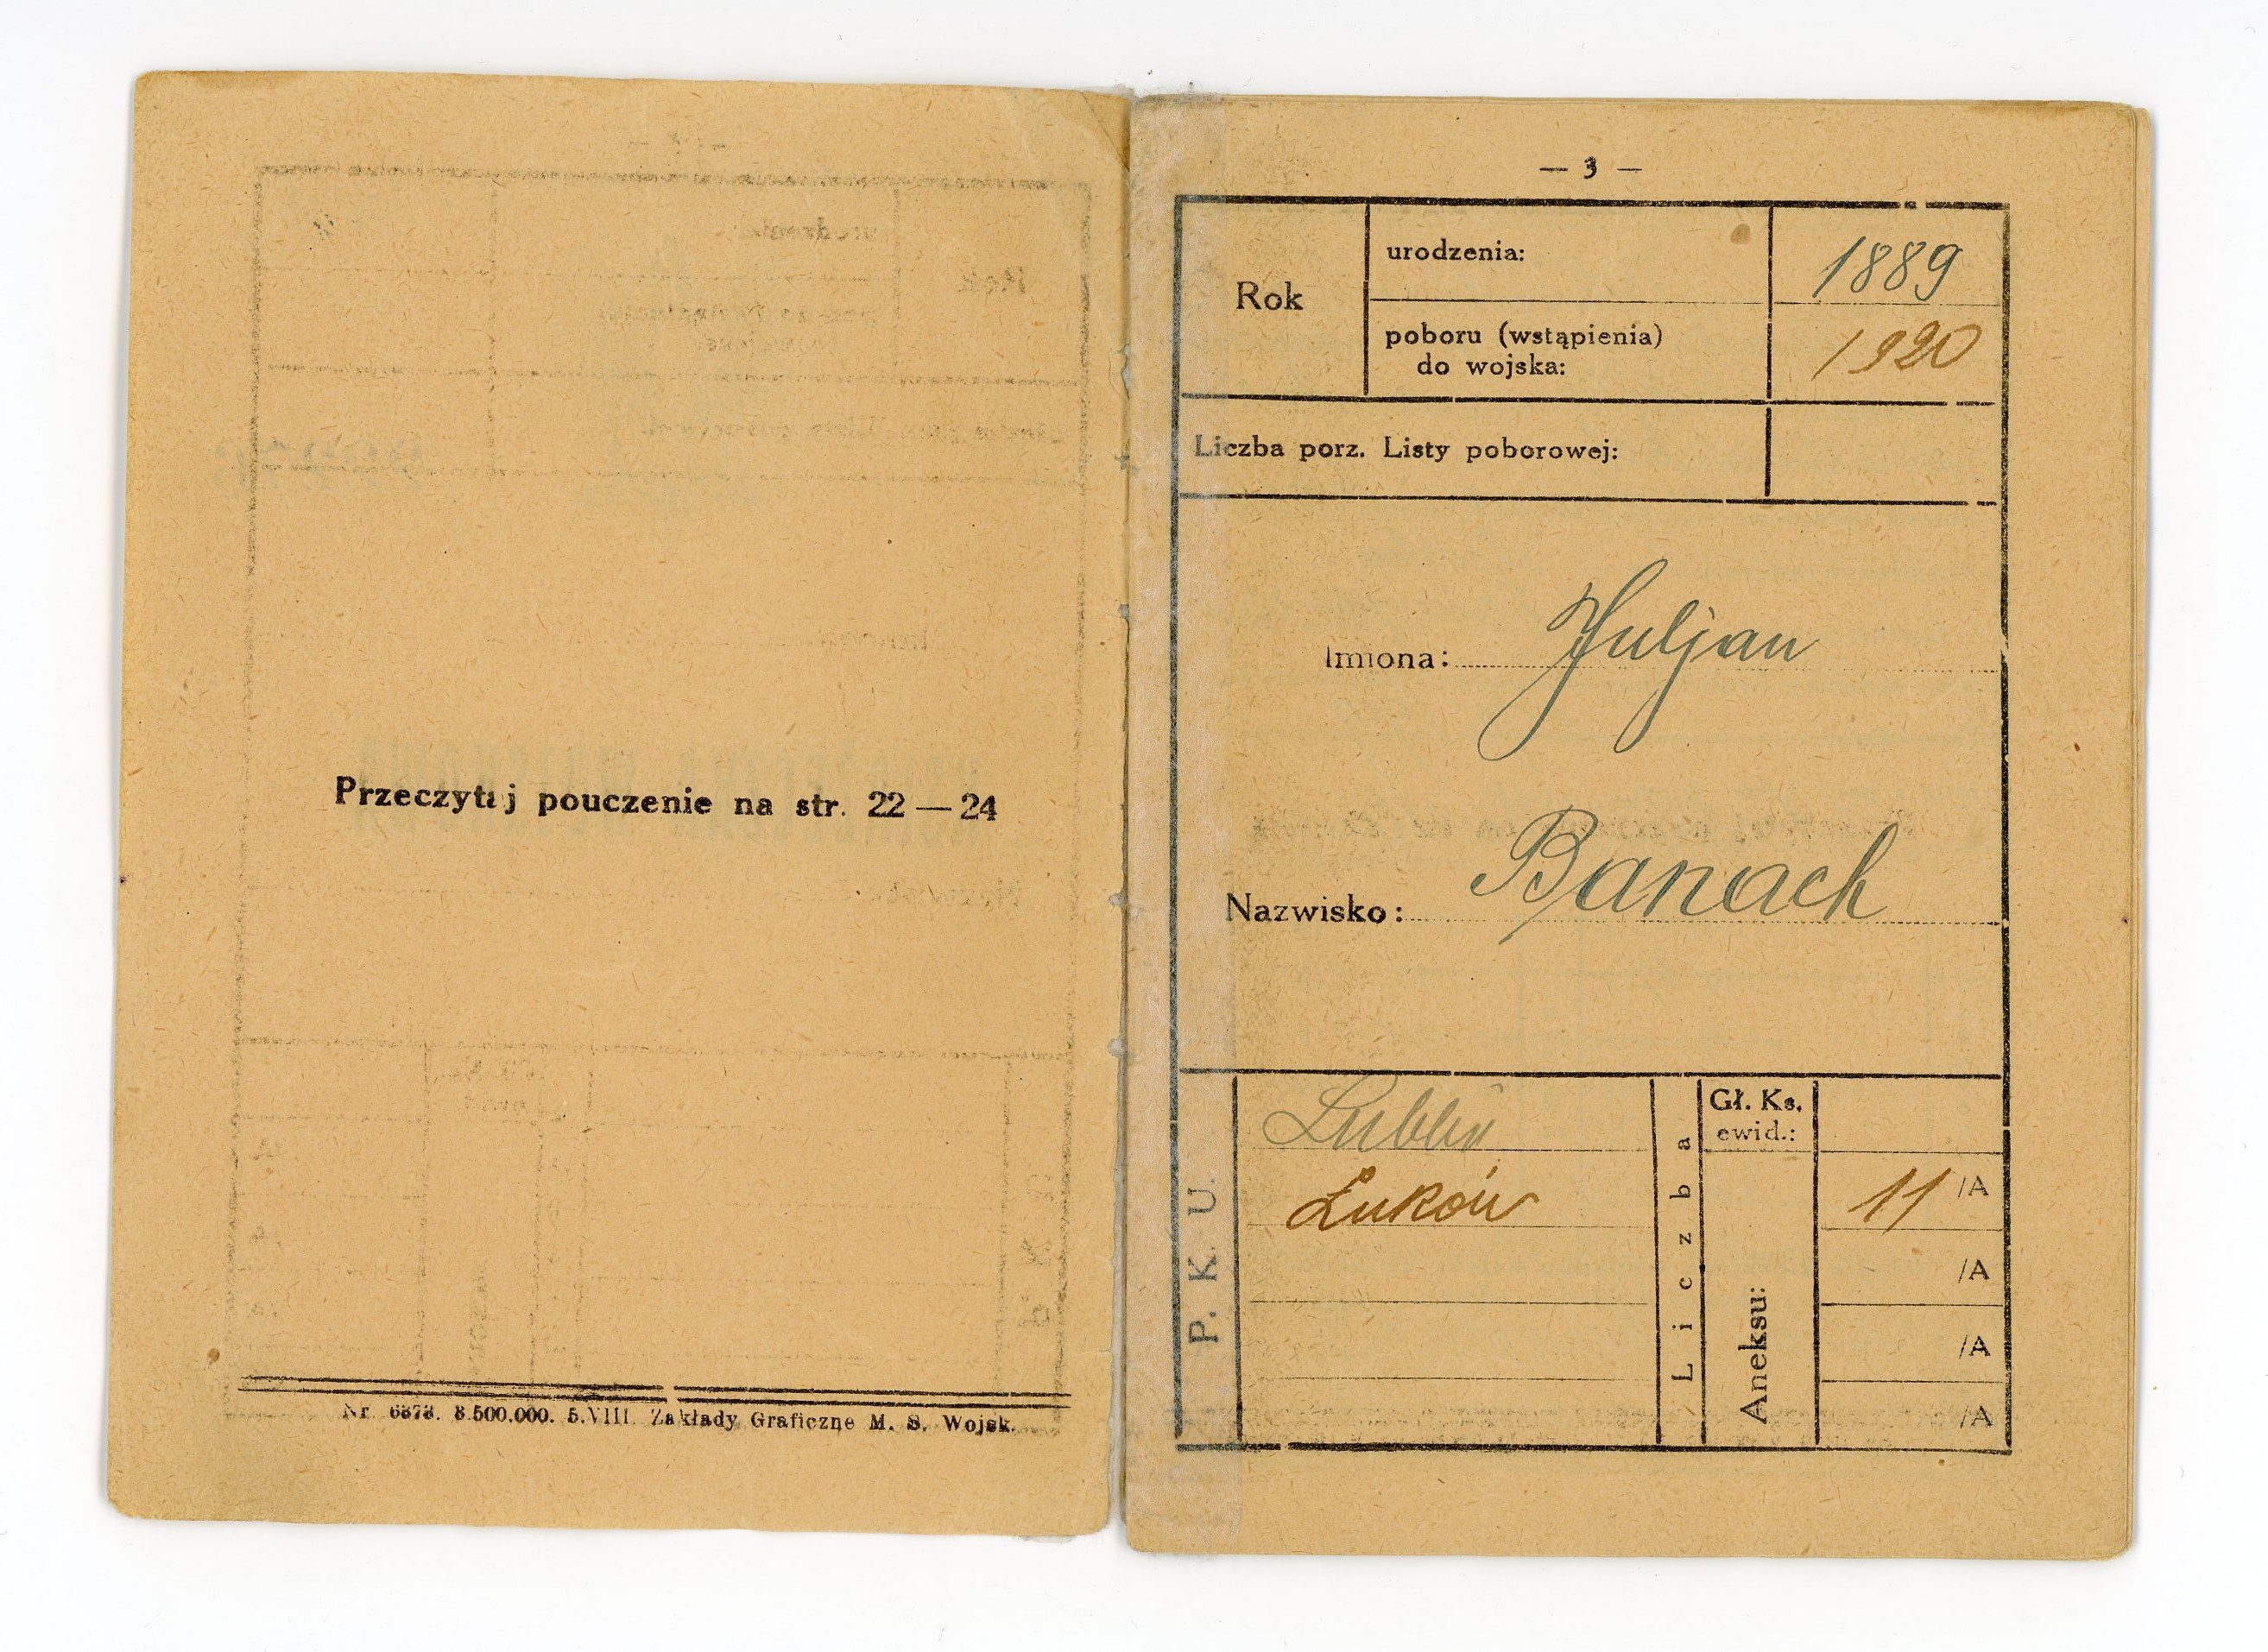 Przeczytaj pouczenie na str. 22 — 24
Nr. 6873. 3.500.000. 5.VIII. Zakłady Graficzne M. S. Wojsk.
— 3 —
Rok
urodzenia:
1889
poboru (wstąpienia)
do wojska:
1920
Liczba porz. Listy poborowej:
Imiona: Juljan
Nazwisko: Banach
P. K. U.
Lublin
Łuków
Liczba
Gł. Ks.
ewid.:
Aneksu:
11 /A
/A
/A
/A